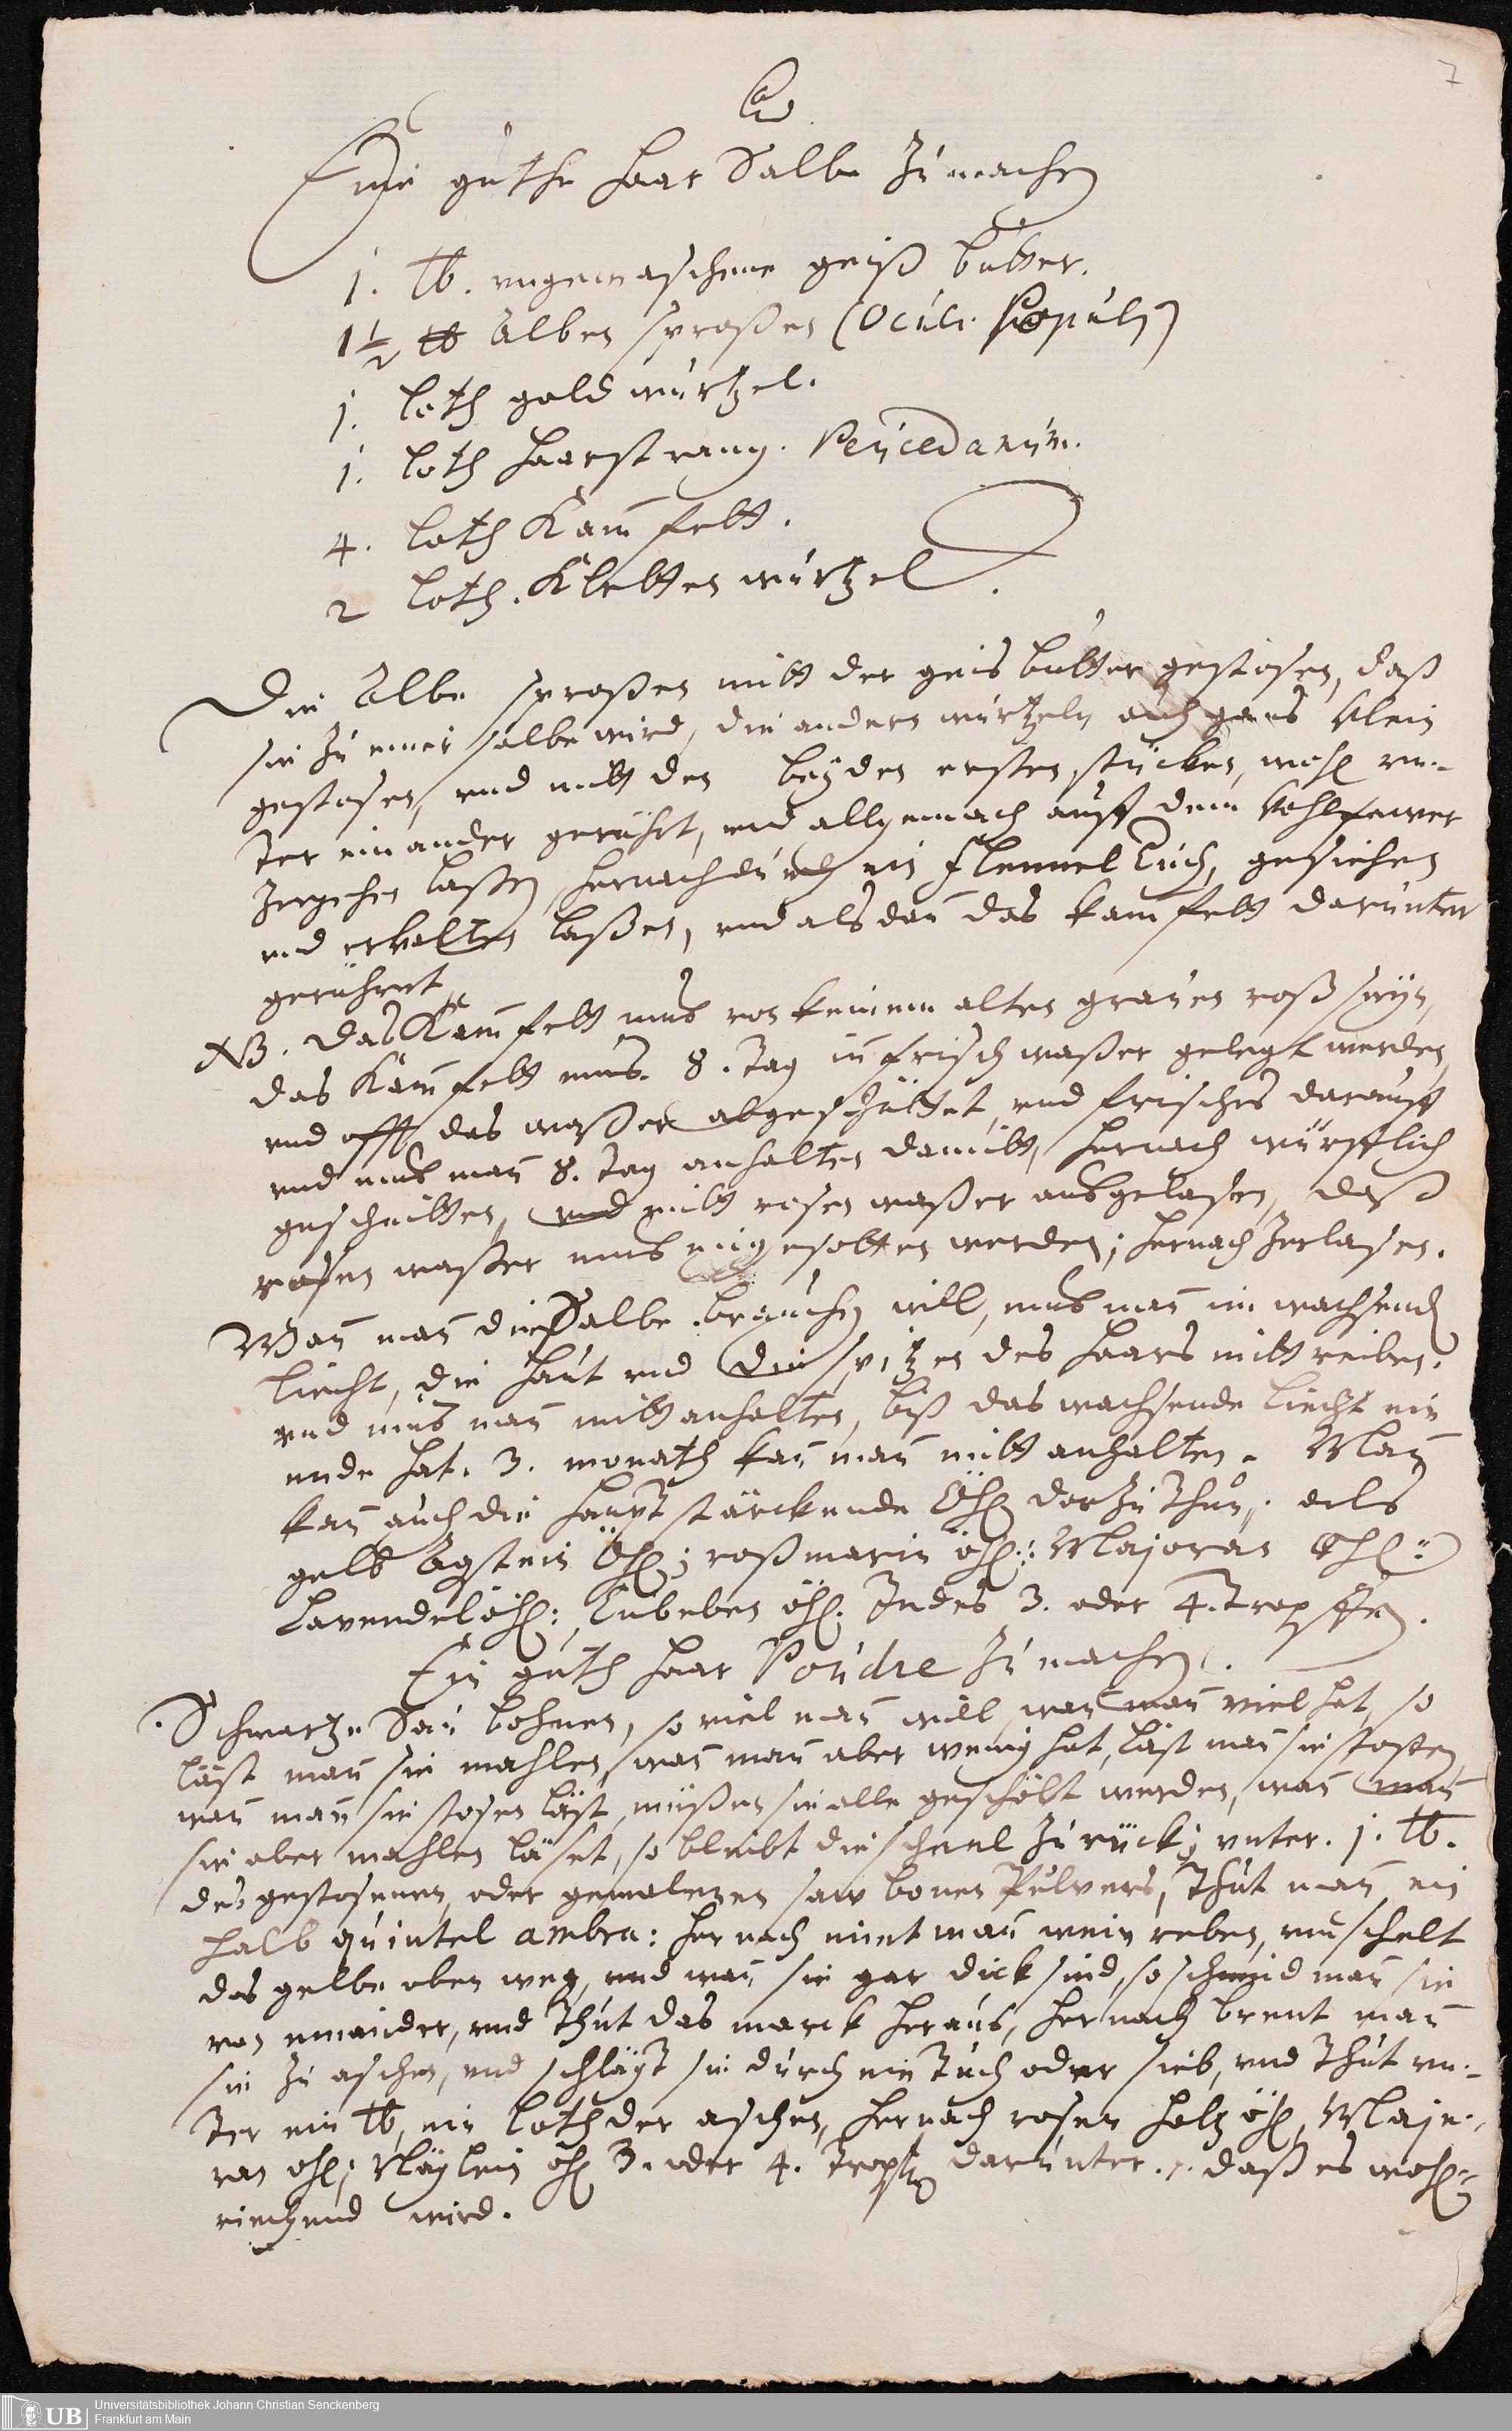 7
Eine guthe Haar Salbe Zu machen
1. ℔. ungewaschene geiß butter.
1½ ℔ Alben sproßen (Oculi Populi)
1. loth gold wurtzel.
1. loth Haarstrang. Peucedanum.
4. loth Kam̄ fett.
2 loth. Kletten wurtzel.
Die Albe sproßen mitt der geis butter gestosen, daß
sie Zu einer salbe wird, die andern wurtzeln auch gans klein
gestosen, und mitt den beyden ersten stücken, wohl un-
ter ein ander gerührt, und allgemach auff dem kohlfewer
Zergehen laßen, hernach durch ein flennel tuch, gesiehen
und erkalten laßen, und alsdan̄ das kam̄ fett darunter
gerühret
NB. das Kam̄ fett mus von keinem alten grauen roß seyn,
das Kam̄ fett mus 8. tag in frisch waßer gelegt werden,
und offt das waßer abgeschüttet, und frisches darauff
und mus man̄ 8. tag anhalten damitt, hernach würfflich
geschnitten, und mitt rosen waßer ausgelasen, daß
rosen waßer mus eingesotten werden; hernach Zerlasen.
Wan̄ man̄ die Salbe brauchen will, mus man̄ im wachsend
liecht, die haut und die spitzen des Haars mitt reiben.
und mus man̄ mitt anhalten, biß das wachsende liecht ein
ende hat. 3. monath kan̄ man̄ mitt anhalten. Man̄
kan̄ auch die haupt stärckende Öhl darzu thun, als
gelb Agstein Öhl; roßmarin öhl; Majoran Öhl:
Lavendel öhl; Cubeben öhl. Jedes 3. oder 4. tropffen.
Ein guth Haar Poudre Zu machen.
Schwartze Sau bohnen, so viel man̄ will, wan̄ man̄ viel hat, so
läst man̄ sie mahlen, wan̄ man̄ aber wenig hat, läst man̄ sie stoßen
wan̄ man̄ sie stosen läst, müßen sie alle geschölt werden, wan̄ man̄
sie aber mahlen läset, so bleibt die scheel Zurück; unter. 1. ℔.
des gestosenen, oder gemalenen saw bonen Pulvers, thut man̄ ein
halb quintel ambra: her nach nimt man̄ wein reben, un schelt
das gelbe oben weg, und wan̄ sie gar dick sind, so schneid man̄ sie
von einander, und thut das marck heraus, hernach brent man̄
sie Zu aschen, und schlägt sie durch ein tuch oder sieb, und thut un-
ter ein ℔, ein loth der aschen, hernach rosen holtz öhl, Majo-
ran öhl; Näglein öhl 3. oder 4. tropffen darunter. daß es wohl
riechend wird.
UB
Universitätsbibliothek Johann Christian Senckenberg
Frankfurt am Main